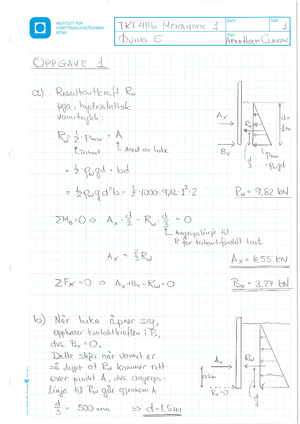 INSTITUTT FOR
KONSTRUKSJONSTEKNIKK
NTNU
TKT4116 MEKANIKK 1
ØVING 5
Dato
Side
1
Sign
OPPGAVE 1
a) Resultantkraft Rw
pga. hydrostatisk
vanntrykk:
Rw = 1/2 · pmax · A
Areal av luke
= 1/2 ρw g d · bd
= 1/2 ρw g d² b = 1/2 · 1000 · 9,82 · 1² · 2
Rw = 9,82 kN
Ax
Bx
Rw
d/3
d=
1m
pmax
= ρw g d
ΣMB = 0 => Ax · d/2 - Rw · d/3 = 0
Angrepslinje til
R for trekantfordelt last
Ax = 2/3 Rw
Ax = 6,55 kN
ΣFx = 0 => Ax + Bx - Rw = 0
Bx = 3,27 kN
b) Når luke åpner seg,
opphører kontaktkraften i B,
dvs. Bx = 0.
Dette skjer når vannet er
så dypt at Rw kommer rett
over punkt A, dvs. angreps-
linja til Rw går gjennom A
d/3 = 500 mm => d = 1,5m
Ax
Rw
0,5m
Bx = 0
d/3